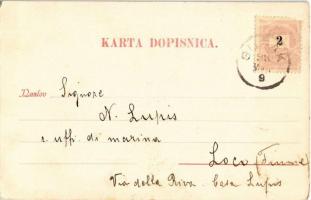 KARTA DOPISNICA.
2
9
Naslov Signore
N. Lupis
i. uff. di marina
Loco (Fiume)
Via della Riva. Casa Lupis